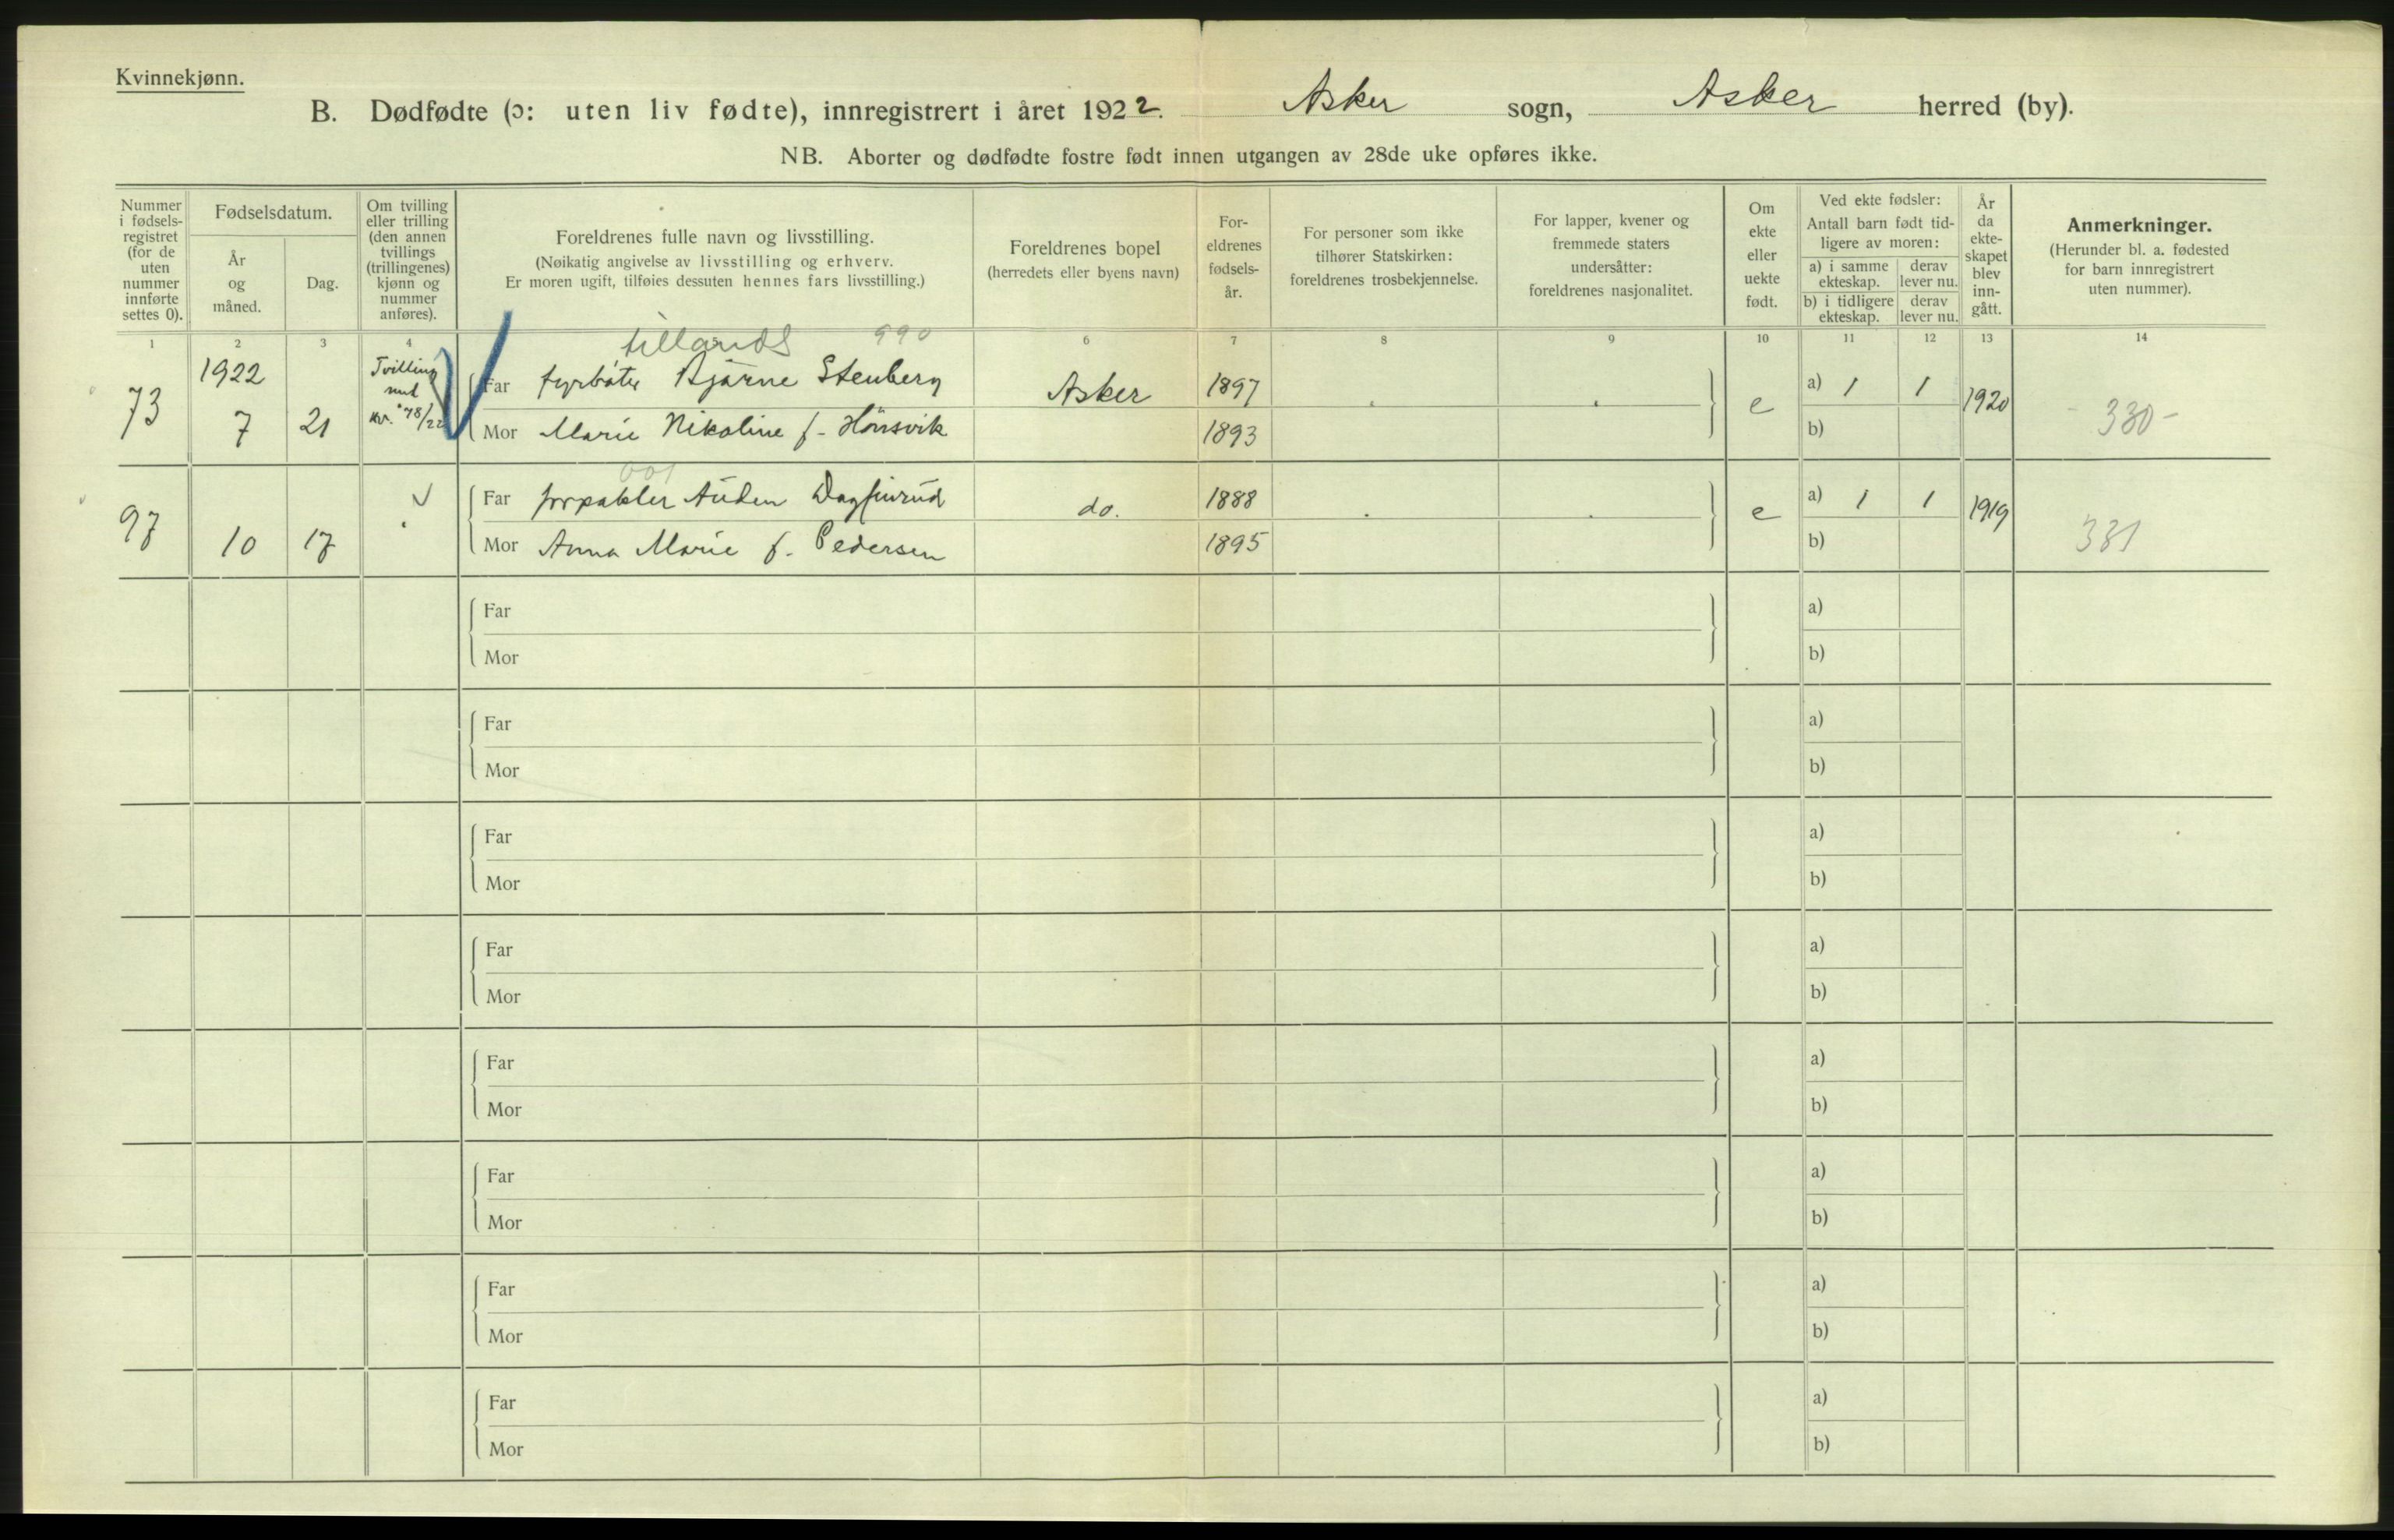 Kvinnekjønn.
B. Dødfødte (ɔ: uten liv fødte), innregistrert i året 1922. Asker sogn, Asker herred (by).
NB. Aborter og dødfødte fostre født innen utgangen av 28de uke opføres ikke.
Nummer i fødsels-registret (for de uten nummer innførte settes 0).
Fødselsdatum.
År og måned.
Dag.
Om tvilling eller trilling (den annen tvillings (trillingenes) kjønn og nummer anføres).
Foreldrenes fulle navn og livsstilling.
(Nøikatig angivelse av livsstilling og erhverv.
Er moren ugift, tilføies dessuten hennes fars livsstilling.)
Foreldrenes bopel
(herredets eller byens navn)
For-eldrenes fødsels-år.
For personer som ikke tilhører Statskirken: foreldrenes trosbekjennelse.
For lapper, kvener og fremmede staters undersåtter: foreldrenes nasjonalitet.
Om ekte eller uekte født.
Ved ekte fødsler:
Antall barn født tid-ligere av moren:
a) i samme ekteskap.
derav lever nu.
b) i tidligere ekteskap.
derav lever nu.
År da ekte-skapet blev inn-gått.
Anmerkninger.
(Herunder bl. a. fødested for barn innregistrert uten nummer).
1 2 3 4 6 7 8 9 10 11 12 13 14
tillands 990
73 1922 7 21 Tvilling med kv. 78/22
Far fyrbøter Bjarne Stenberg Asker 1897 e a) 1 1 1920 - 330 -
Mor Marie Nikoline f. Hønsvik 1893 b)
001
97 10 17
Far forpakter Auden Dagfinrud do. 1888 e a) 1 1 1919 331
Mor Anna Marie f. Pedersen 1895 b)
Far a)
Mor b)
Far a)
Mor b)
Far a)
Mor b)
Far a)
Mor b)
Far a)
Mor b)
Far a)
Mor b)
Far a)
Mor b)
Far a)
Mor b)